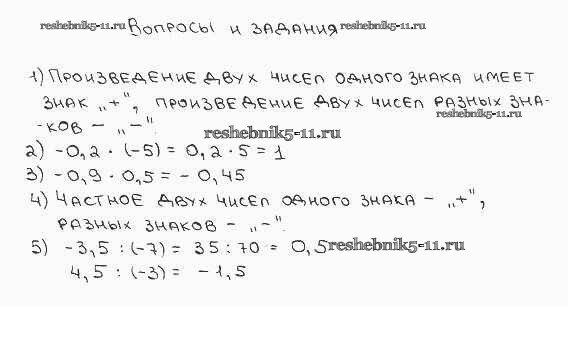 reshebnik5-11.ru Вопросы и задания reshebnik5-11.ru
1) Произведение двух чисел одного знака имеет
знак „+“, произведение двух чисел разных зна-
reshebnik5-11.ru
-ков – „–“.
reshebnik5-11.ru
2) -0,2 · (-5) = 0,2 · 5 = 1
3) -0,9 · 0,5 = - 0,45
4) Частное двух чисел одного знака – „+“,
разных знаков – „–“.
5) -3,5 : (-7) = 35 : 70 = 0,5 reshebnik5-11.ru
4,5 : (-3) = - 1,5